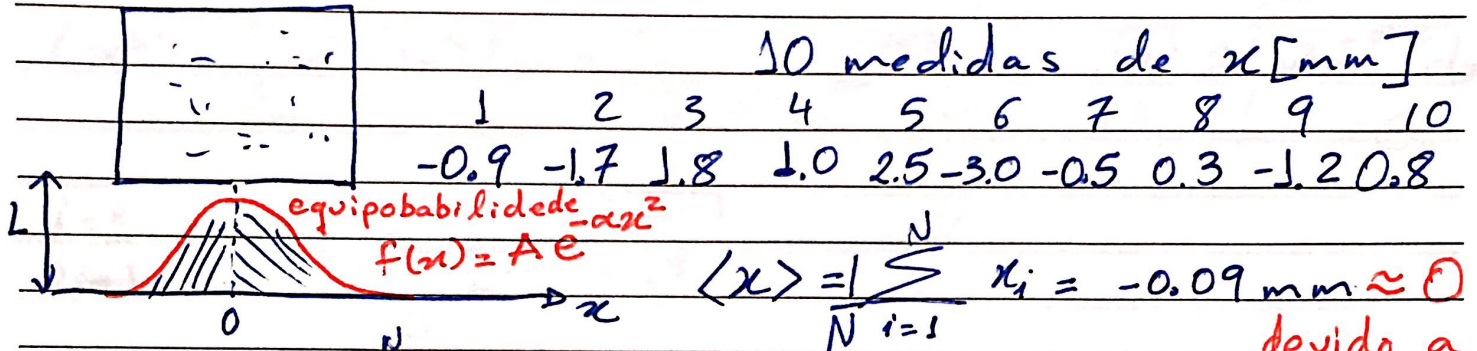 10 medidas de x [mm]
1 2 3 4 5 6 7 8 9 10
-0.9 -1.7 1.8 1.0 2.5 -3.0 -0.5 0.3 -1.2 0.8
L
equipobabilidade
f(x) = A e^{-αx²}
<x> = 1/N Σ_{i=1}^{N} x_i = -0.09 mm ≈ 0
0 x
N
devido a